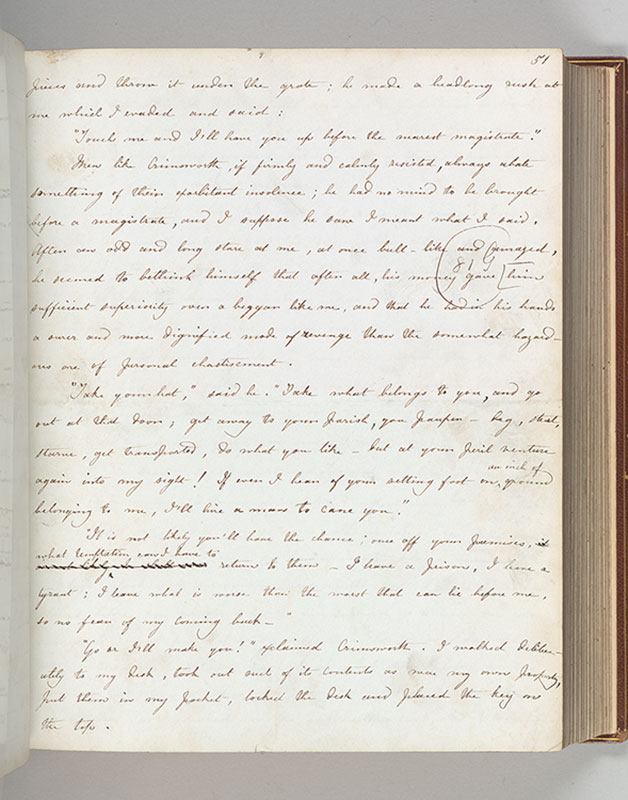 51
pieces and threw it under the grate; he made a headlong rush at
me which I evaded and said:
"Touch me and I'll have you up before the nearest magistrate."
Men like Crimsworth, if firmly and calmly resisted, always abate
something of their exorbitant insolence; he had no mind to be brought
before a magistrate, and I suppose he saw I meant what I said.
After an odd and long stare at me, at once bull-like and amazed,
he seemed to bethink himself that after all, his money gave him
81
sufficient superiority over a beggar like me, and that he had in his hands
a surer and more dignified mode of revenge than the somewhat hazard-
ous one of personal chastisement.
"Take your hat," said he. "Take what belongs to you, and go
out at that door; get away to your parish, you pauper - beg, steal,
starve, get transported, do what you like - but at your peril venture
again into my sight! If ever I hear of your setting foot on an inch of ground
belonging to me, I'll hire a man to cane you."
"It is not likely you'll have the chance; once off your premises,
what temptation can I have to
return to them - I leave a prison, I leave a
tyrant; I leave what is worse than the worst that can lie before me,
so no fear of my coming back -"
"Go or I'll make you!" exclaimed Crimsworth. I walked deliber-
ately to my desk, took out such of its contents as were my own property,
put them in my pocket, locked the desk and placed the key on
the top.